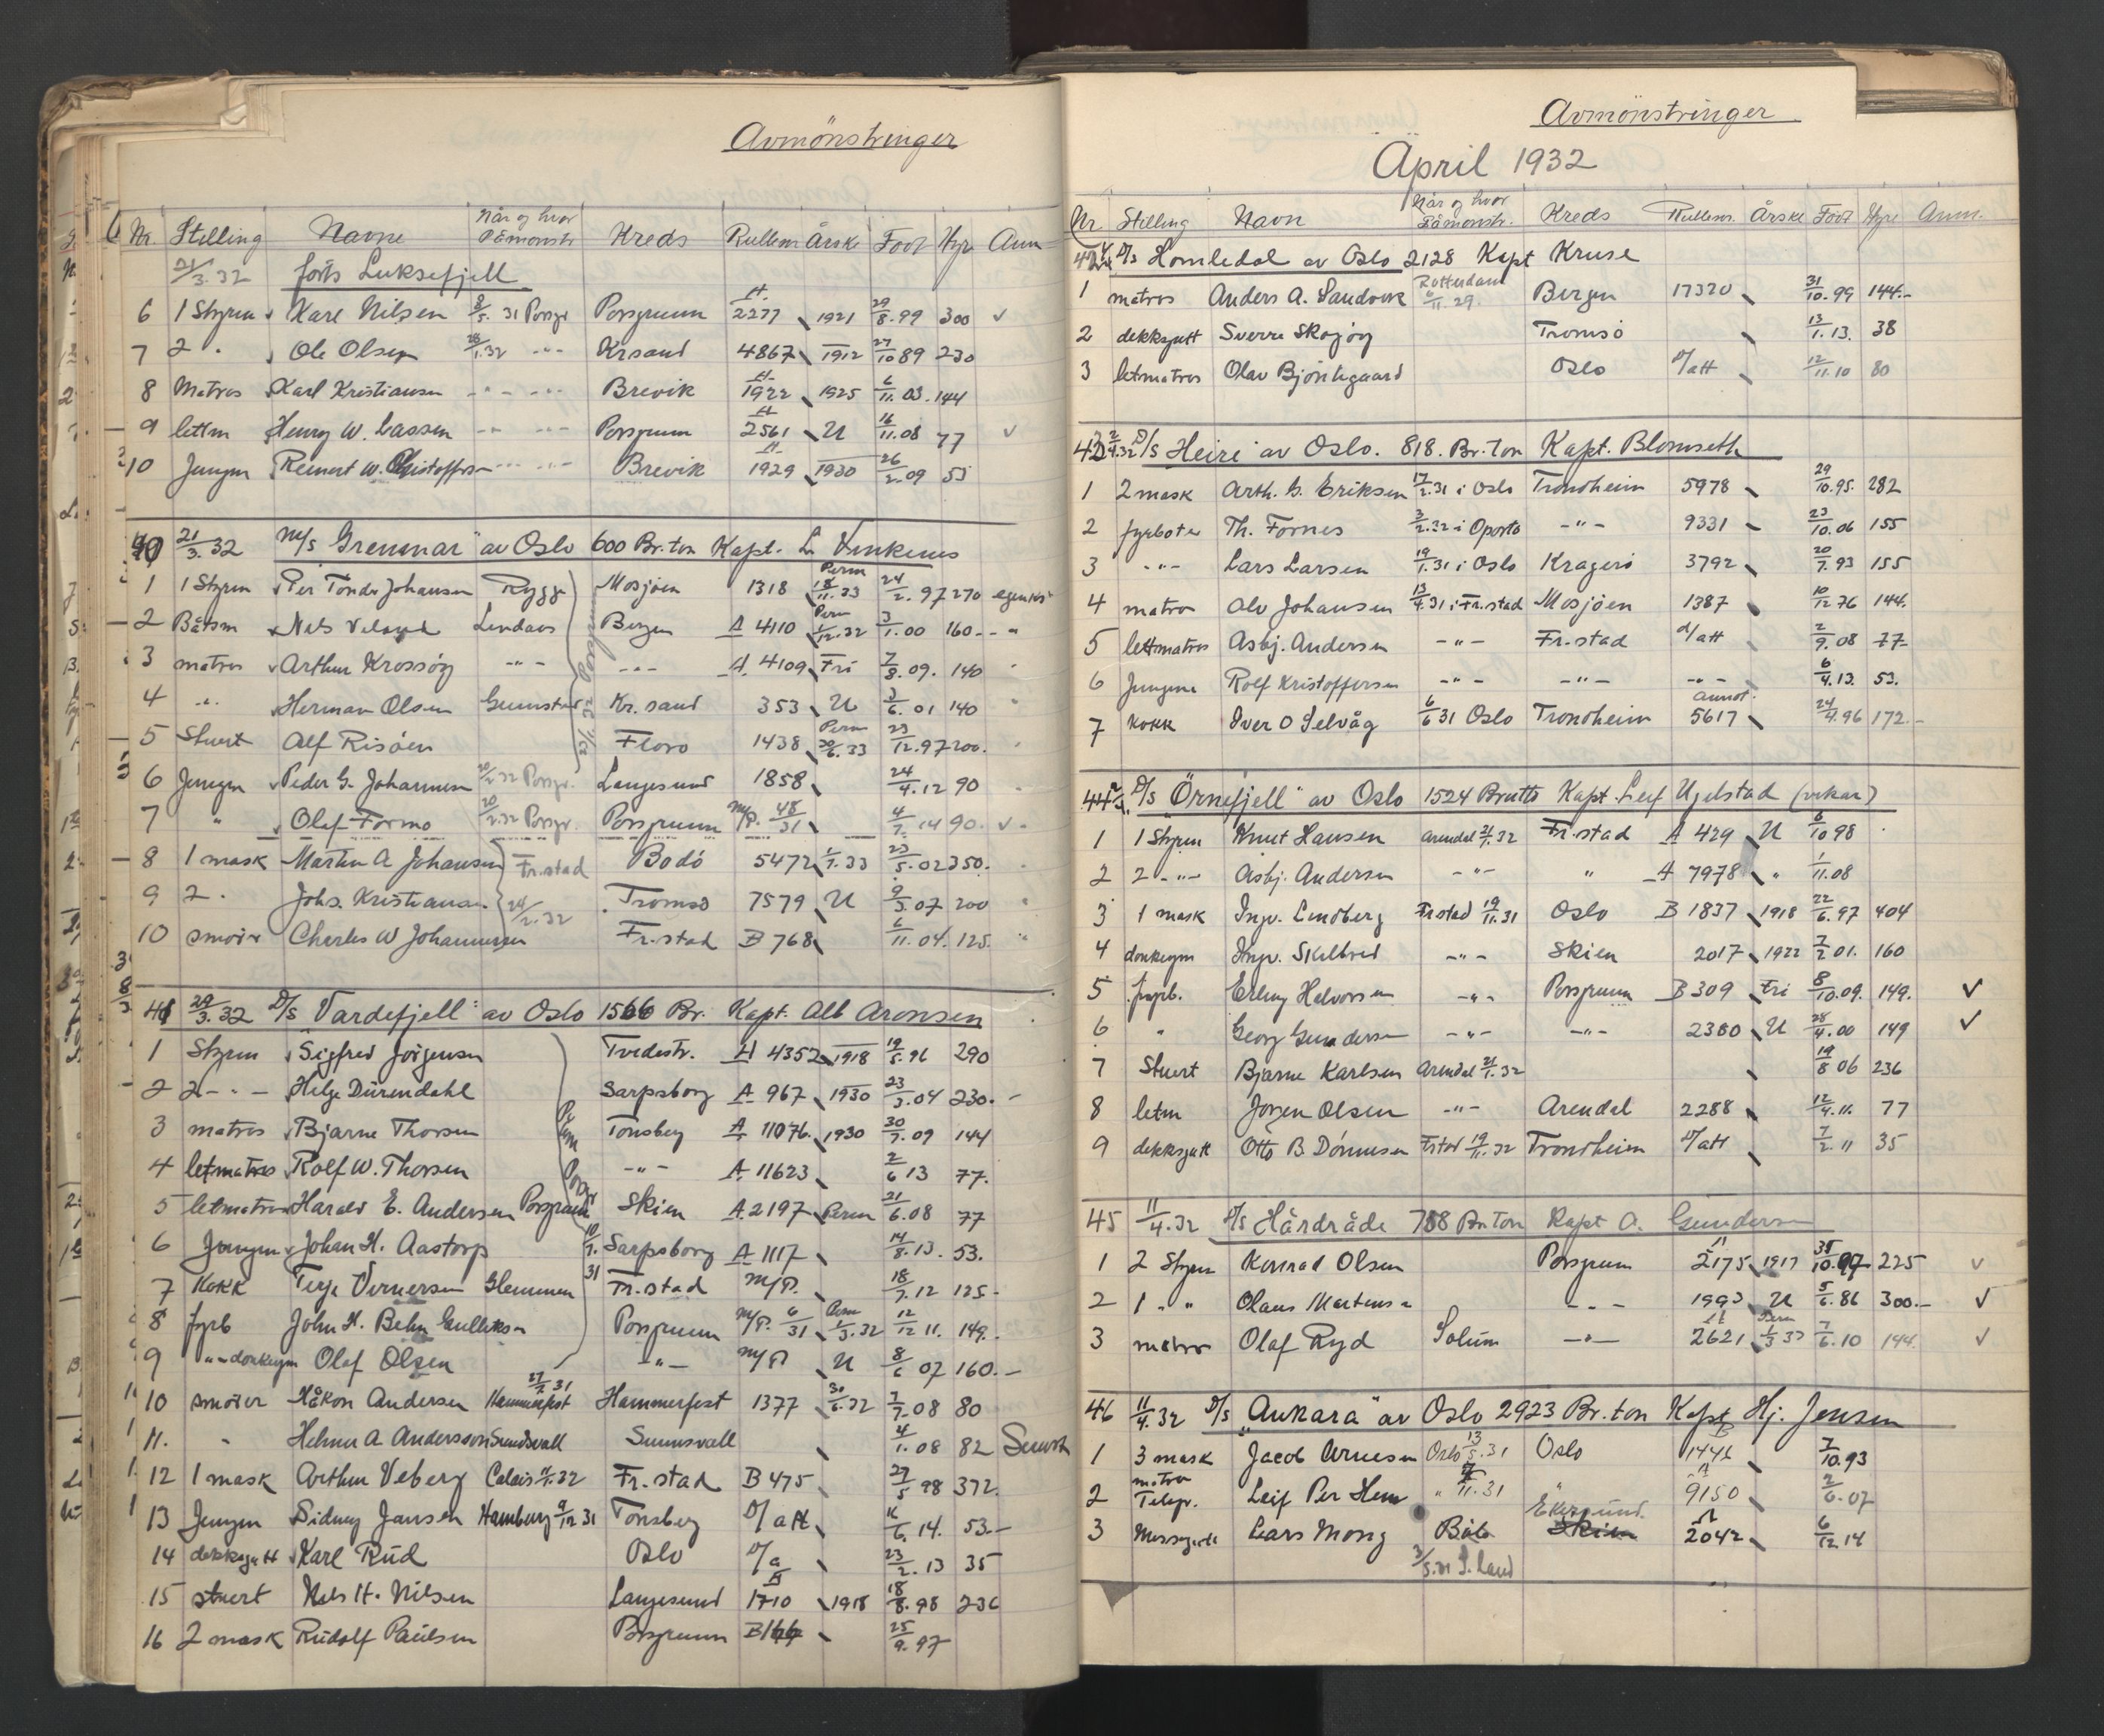 Avmönstringer
Nr. Stilling Navne Når og hvor Påmönstr Kreds Rullenr Årskl Född Hyre Anm
21/3.32 forts Luksefjell
6 1 Styrm Karl Nilsen 8/5. 31 Porsgr Porsgrunn A 2277 1921 29/8.99 300 ✓
7 2 " Ole Olsen 28/1.32 -"- Krsand 4867 1912 27/10 89 230
8 Matros Karl Kristiansen -"- -"- Brevik A 1922 1925 6/11.03. 144
9 lettm Henry W. Lassen -"- -"- Porsgrunn A 2561 U 16/11.08 77 ✓
10 Jungm Reinert W. Kristoffersen -"- -"- Brevik A 1929 1930 26/2.09 53
40 21/3.32 M/s "Grenmar" av Oslo 600 Br.ton Kapt. L.
1 1 Styrm Per Tonder Johansen Rygge Mosjöen 1318 Perm 18/11.33 24/2.97 270
2 Båtsm Nels Lindaas Bergen A 4110 Perm 1/12.32 3/1.00 160.-
3 matros Arthur Krossöy -"- -"- A 4109 Fri 7/8.09. 140
4 " Herman Olsen Grimstad Kr.sand 353 U 3/6.01 140
5 Stuert Alf Risöen Florö 1438 Perm 30/6.33 23/12.97 200.
6 Jungm Peder G. Johannesen 20/2.32 Porsgr. Langesund 1858 24/4.12 90
7 " Olaf Formo 20/2.32 Porsgr. Porsgrunn M/P. 48/31 4/7.14 90. ✓
8 1 mask Martin A Johansen Fr.stad Bodö 5472 1/7.33 23/5.02 350.
9 2 " Johs. Kristiansen 24/2.32 Tromsö 7579 U 9/3.07 200
10 smörer Charles W Johannessen Fr.stad B 768 6/11.04. 125.
41 29/3.32 D/s "Vardefjell" av Oslo 1566 Br. Kapt. Alb Aronsen
1 Styrm Sigfred Jörgensen Tvedestr. A 4352 1918 19/5.96 290
2 2 -"- Helge Dürendahl Sarpsborg A 967 1930 23/3.04 230.-
3 matros Bjarne Thorsen Tönsberg A 11076. 1930 30/7.09 144
4 letmatros Rolf W. Thorsen -"- A 11623 2/6 13 77.
5 letmatros Harald E. Andersen Porsgrunn Skien A. 2197 Perm 21/6.08 77
6 Jungm Johan H. Aastorp 10/7. Sarpsborg A 1117 14/8.13. 53.
7 Kokk Terje Vernersen Glemmen 31 Fr.stad M/P. 18/7.12 125-
8 fyrb John H. Behn Gulliksen Porsgrunn M/P. 6/31 Perm 1/3.32 12/12 11. 149.
9 "-donkeym Olaf Olsen -"- M/P U 8/6 07 160.-
10 smörer Håkon Andersen 27/2 31 Hammerfest Hammerfest 1377 30/6.32 7/7.08 80
11. " Helmer A Andersson Sundsvall Sunnsvall 4/1.08 82
12 1 mask Arthur Veberg Calais 11/1.32 Fr.stad B 475 27/5 98 372.
13 Jungm Sidney Jansen Hamburg 9/12 31 Tönsberg D/att 16/6. 14. 53.-
14 dekksgutt Karl Rud Oslo D/a 23/2.13 35
15 stuert Nels H. Nilsen Langesund A 1710 1918 18/8.98 236
16 2 mask Rudolf Paulsen Porsgrunn B 166 25/9.97
Avmönstringer
April 1932
Nr. Stilling Navn Når og hvor Påmonstr. Kreds Rullenr. Årskl Född Hyre Anm.
42 D/s Homledal av Oslo 2128 Kapt Kruse
1 matros Anders A. Sandvik Rotterdam 6/11.29. Bergen 17320 31/10.99 144.-
2 dekksgutt Sverre Skogöy Tromsö 13/1.13. 38
3 letmatros Olav Björntegaard Oslo D/att 12/11.10 80
43 2/4.32 D/s "Heire" av Oslo. 818. Br.ton Kapt. Blomseth
1 2 mask Arth. G. Eriksen 17/2.31 i Oslo Trondheim 5978 29/10.95. 282
2 fyrböter Th. Fornes 3/2.32 i Oporto -"- 9331 23/10.06 155
3 -"- Lars Larsen 19/1.31 i Oslo Kragerö 3792 20/7.93 155
4 matros Olv Johansen 13/4.31 i Fr.stad Mosjöen 1387 10/12 76 144.
5 lettmatros Asbj. Andersen -"- Fr.stad D/att 2/9.08 77
6 Jungm Rolf Kristoffersen -"- -"- -"- 6/4.13. 53.
7 kokk Iver O Selvåg 6/6 31 Oslo Trondheim Annot. 5617 24/4.96 172.-
44 D/s "Örnefjell" av Oslo 1524 Brutto Kapt. Leif Ugelstad (vikar)
1 1 Styrm Knut Hansen Arendal 21/1.32 Fr.stad A 429 U 6/10 98
2 2 -"- Asbj. Andersen -"- " A 7978 " 1/11.08
3 1 mask Ingv. Lindberg Frstad 19/11.31 Oslo B 1837 1918 22/6.97 404
4 donkeym Ingv. Skilbred -"- Skien 2017 1922 7/2 01. 160
5 fyrb. Erling Halvorsen -"- Porsgrunn B 309 Fri 8/10.09. 149. ✓
6 " Georg Gundersen -"- -"- 2380 U 28/4.00 149 ✓
7 Stuert Bjarne Karlsen Arendal 21/1.32 19/8 06 236
8 letm Jörgen Olsen -"- Arendal 2288 12/4.11. 77
9 dekksgutt Otto B. Dönnesen Frstad 19/11.32 Trondheim D/att 7/2.11 35
45 11/4.32 D/s Hårdråde 788 Br.Ton Kapt A. Gundersen
1 2 Styrm Konrad Olsen Porsgrunn A 2175 1917 /10.97 225 ✓
2 1 " " Olaus Martinsen -"- 1993 U 5/6.86 300.- ✓
3 matros Olaf Ryd Solum -"- A 2621 Perm 1/3 33 7/6.10 144. ✓
46 11/4.32 D/s "Ankara" av Oslo 2923 Br.ton Kapt Hj. Jensen
1 3 mask Jacob Arnesen Oslo 13/5.31 Oslo B 1446 7/10.93
2 matros Telegr. Leif Per Hem " /11.31 " A 9150 2/6.07
3 Messegutt Lars Mong Egersund. Skien A 2042 6/12 14